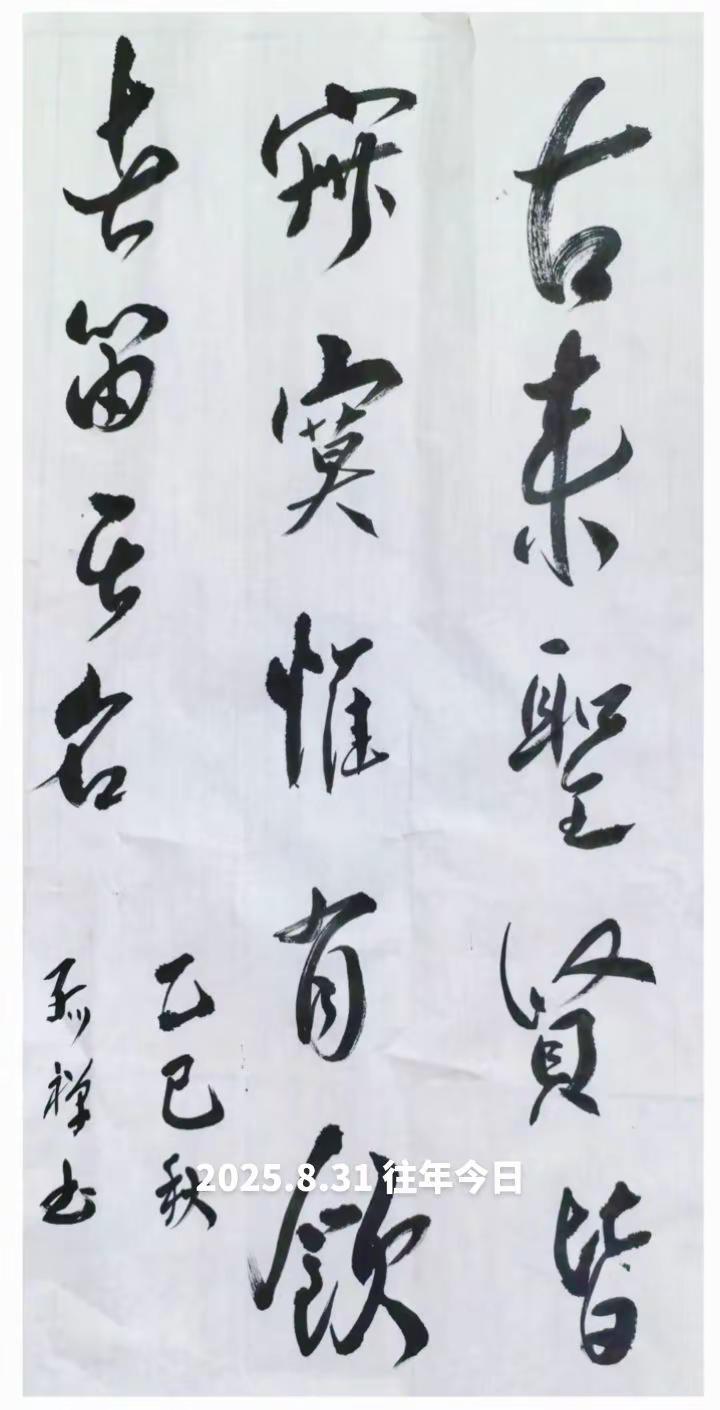 古来聖賢皆
寂寞惟有飲
者留其名
乙巳秋
禅书
2025.8.31 往年今日